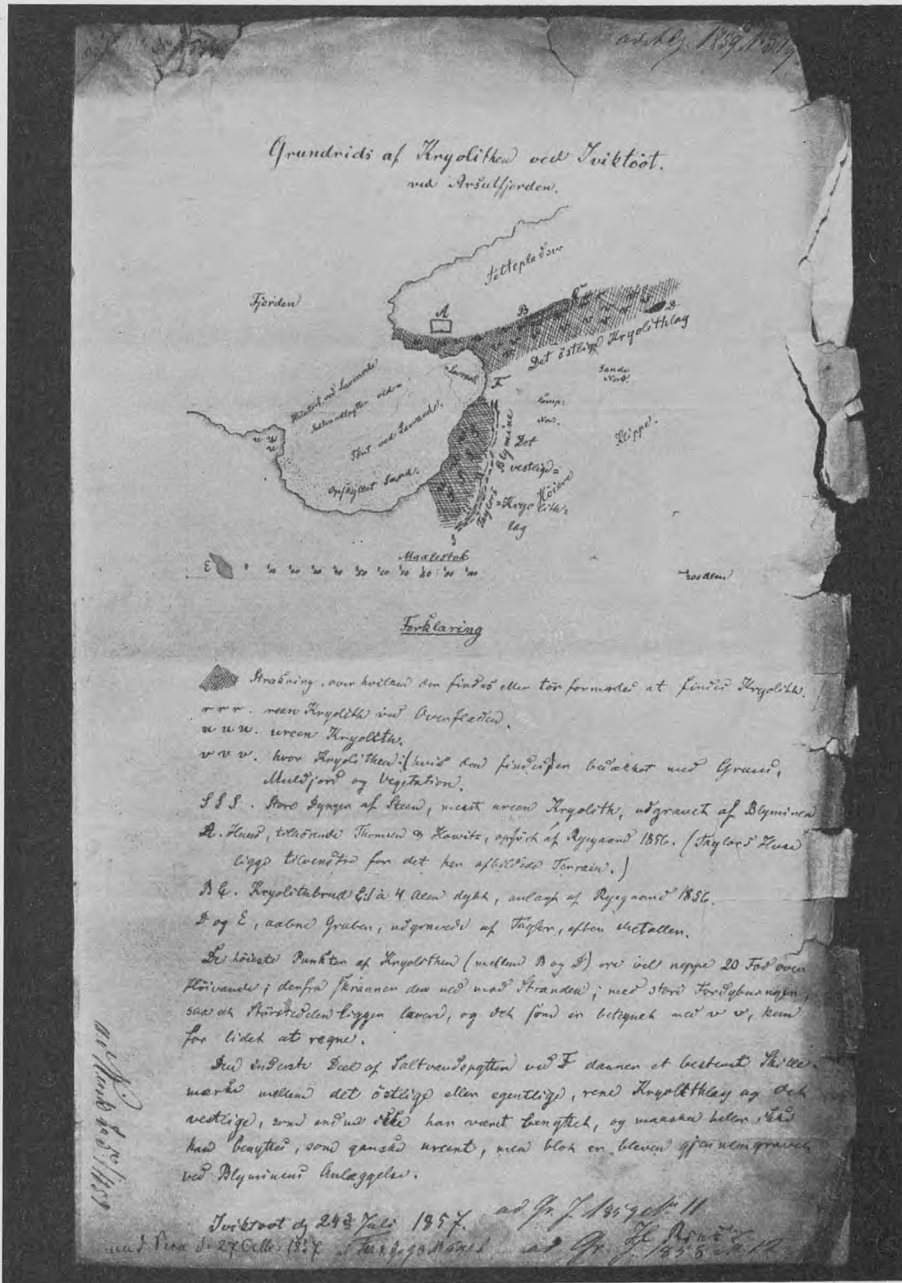 Grundrids af Kryolithen ved Iviktöot.
ved Arsutfjorden.
Teltepladser
Fjorden
A
B
C
D
Det östlige Kryolithlag
F
Sande
Klippe.
Höivand ved Lavvande
Saltvandspytter ved
Tört ved Lavvande.
Opskyllet Sand.
u u u
Taylors Blymine
Det
vestlige
Kryolith=
lag
Höiere
E
Maalestok
200 Alen
Forklaring
Strækning, over hvilken der findes eller tör formodes at findes Kryolith.
r r r. reen Kryolith ved Overfladen.
u u u. ureen Kryolith.
v v v. hvor Kryolithen (hvis den findes) er bedækket med Gruus,
Muldjord og Vegetation.
S S S. Store Dynger af Steen, mest ureen Kryolith, udgravet af Blyminen
A. Huus, tilhörende Thomsen & Howitz, opfört af Rysgaard 1856. (Taylors Huse
ligge tilvenstre for det her afbildede Terrain.)
B C. Kryolithbrud, 4 Alen dybt, anlagt af Rysgaard 1856.
D og E, aabne Gruber, udgravede af Taylor, efter Metaller.
De höieste Punkter af Kryolithen (mellem B og D) ere vel neppe 20 Fod over
Höivande; derfra skraaner den ned mod Stranden; med store Fordybninger,
saa at Störstedelen ligger lavere, og det som er betegnet med v v, kun
for lidet at regne.
Den inderste Deel af Saltvandspytten ved F danner et bestemt Skille=
mærke mellem det östlige eller egentlige, rene Kryolithlag og det
vestlige, som endnu ikke har været benyttet, og maaskee heller ikke
kan benyttes, som ganske ureent, men blot er bleven gjennemgravet
ved Blyminens Anlæggelse.
Iviktoot d. 24de Juli 1857.
H. Rink
ad Gr. J. 1859 No 11
ad Gr. J. 1858 No 12